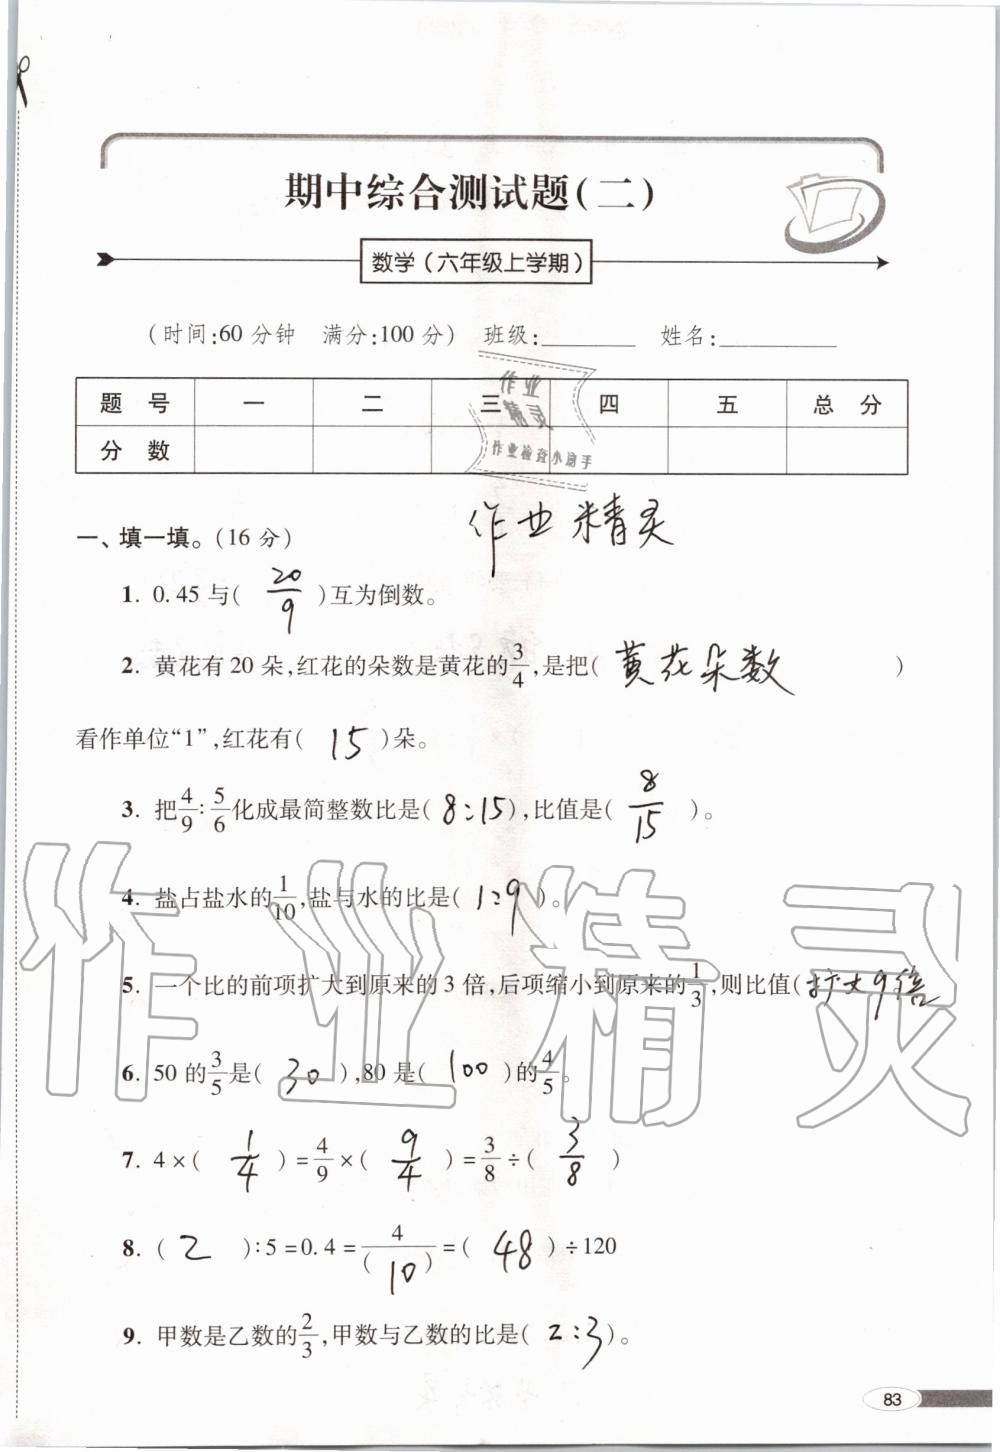 期中综合测试题(二)
数学(六年级上学期)
(时间:60分钟 满分:100分) 班级:________ 姓名:________
题 号 一 二 三 四 五 总 分
分 数
作业
精灵
作业检查小助手
作业精灵
一、填一填。(16分)
1. 0.45与( 20/9 )互为倒数。
2. 黄花有20朵,红花的朵数是黄花的3/4,是把( 黄花朵数 )
看作单位“1”,红花有( 15 )朵。
3. 把4/9∶5/6化成最简整数比是( 8:15 ),比值是( 8/15 )。
4. 盐占盐水的1/10,盐与水的比是( 1:9 )。
5. 一个比的前项扩大到原来的3倍,后项缩小到原来的1/3,则比值( 扩大9倍
6. 50的3/5是( 30 ),80是( 100 )的4/5。
7. 4×( 1/4 )=4/9×( 9/4 )=3/8÷( 3/8 )
8. ( 2 )∶5=0.4=4/( 10 )=( 48 )÷120
9. 甲数是乙数的2/3,甲数与乙数的比是( 2:3 )。
作业精灵
83